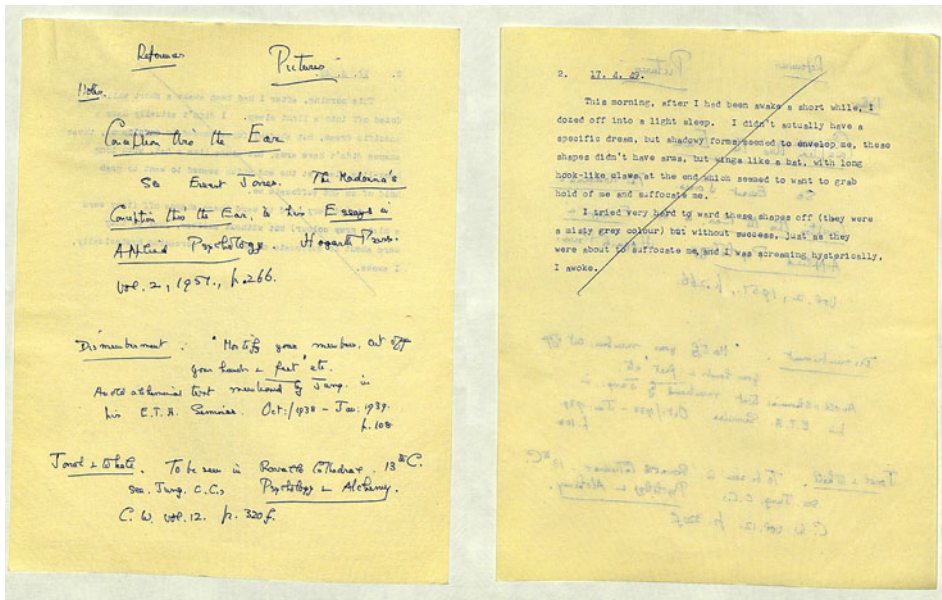 References Pictures
Notes.
Conception thro the Ear
See Ernest Jones. The Madonna's
Conception thro the Ear, in his Essays in
Applied Psychology. Hogarth Press.
vol. 2, 1951, p. 266.
Dismemberment : "Mortify your members, cut off
your hands & feet" etc.
An old alchemical text mentioned by Jung. in
his E.T.H. Seminar. Oct:/1938 - Jan: 1939.
p. 108
Jonah & Whale. To be seen in Cathedral. 13th C.
see. Jung. C.G., Psychology & Alchemy.
C. W. vol. 12. p. 320 f.
2. 17. 4. 49.
This morning, after I had been awake a short while, I
dozed off into a light sleep. I didn't actually have a
specific dream, but shadowy forms seemed to envelop me, these
shapes didn't have arms, but wings like a bat, with long
hook-like claws at the end which seemed to want to grab
hold of me and suffocate me.
I tried very hard to ward these shapes off (they were
a misty grey colour) but without success, just as they
were about to suffocate me, and I was screaming hysterically,
I awoke.